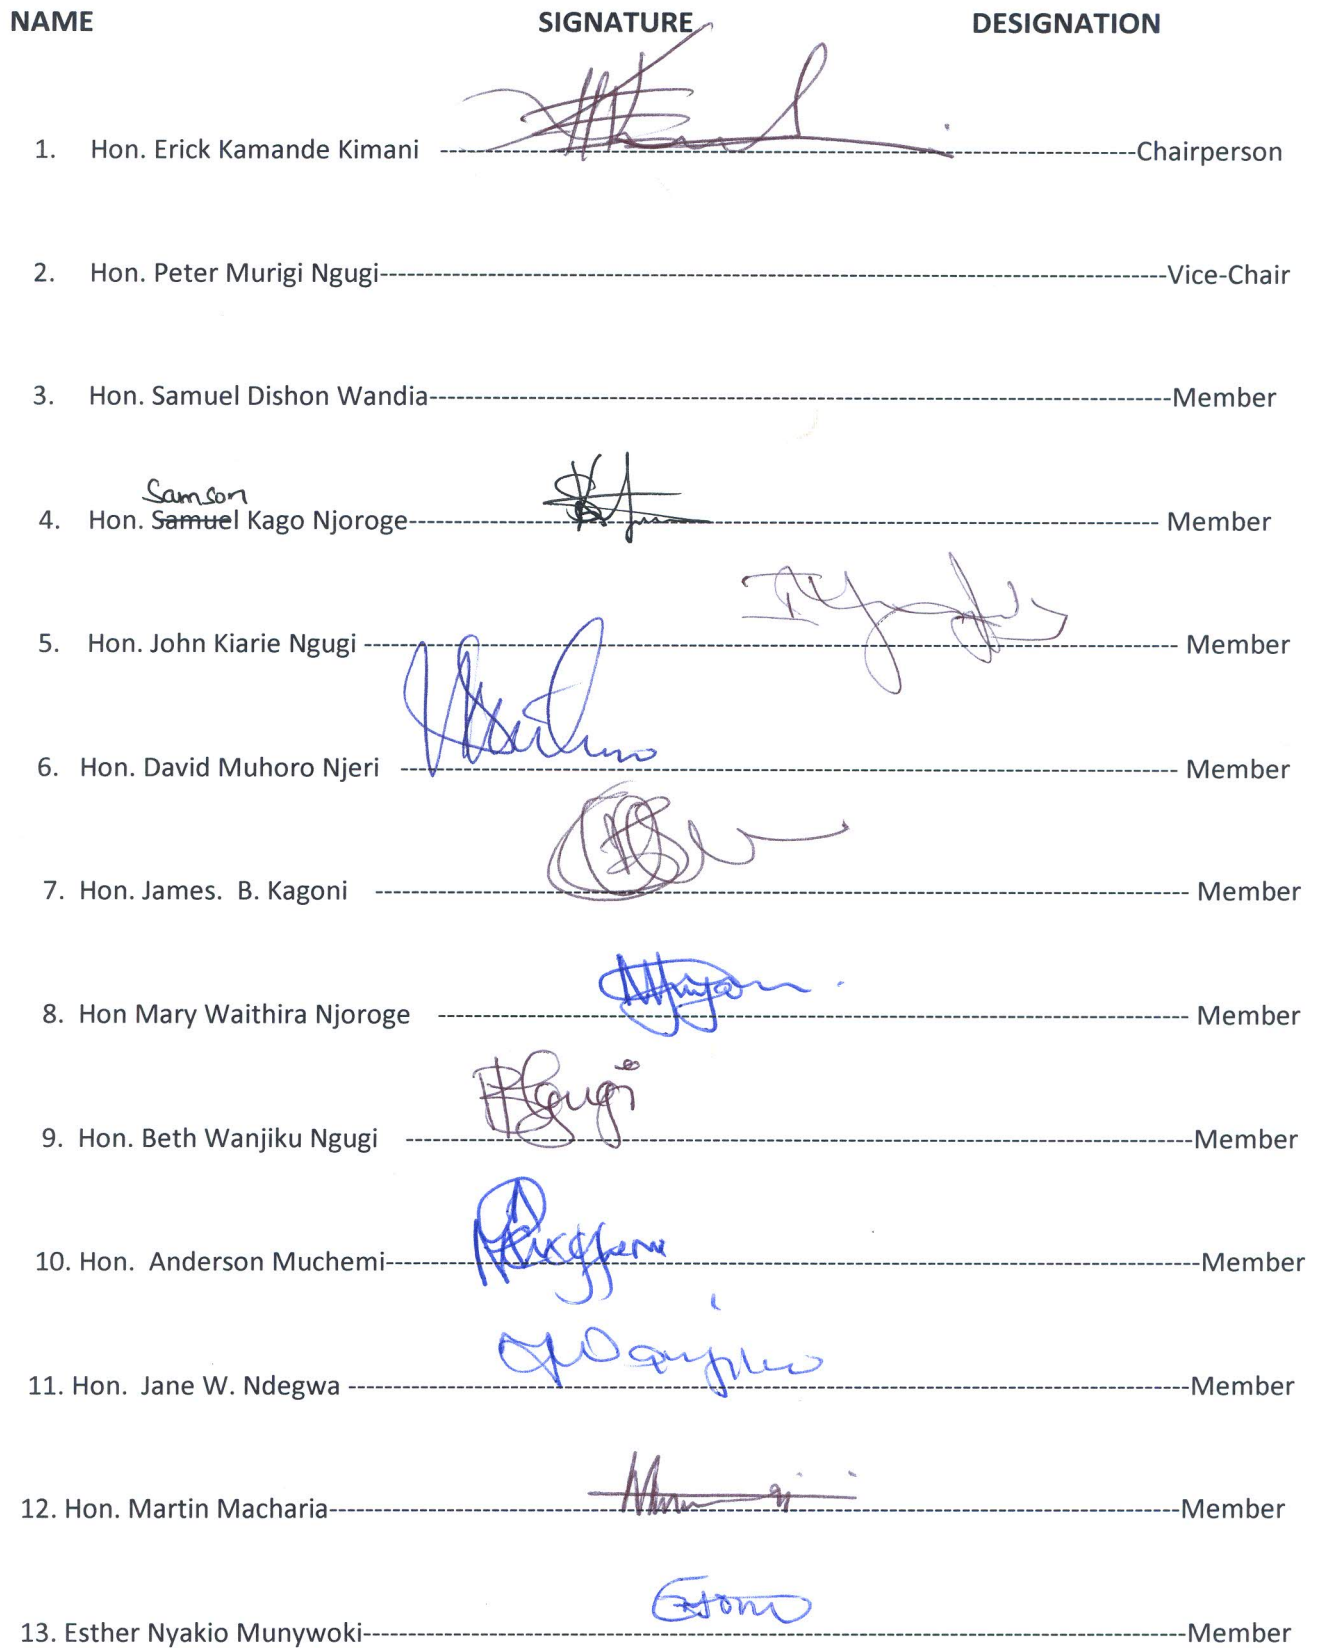 NAME SIGNATURE DESIGNATION
1. Hon. Erick Kamande Kimani ----------Chairperson
2. Hon. Peter Murigi Ngugi----------Vice-Chair
3. Hon. Samuel Dishon Wandia----------Member
Samson
4. Hon. Samuel Kago Njoroge---------- Member
5. Hon. John Kiarie Ngugi ---------- Member
6. Hon. David Muhoro Njeri ---------- Member
7. Hon. James. B. Kagoni ---------- Member
8. Hon Mary Waithira Njoroge ---------- Member
9. Hon. Beth Wanjiku Ngugi ----------Member
10. Hon. Anderson Muchemi----------Member
11. Hon. Jane W. Ndegwa ----------Member
12. Hon. Martin Macharia----------Member
13. Esther Nyakio Munywoki----------Member